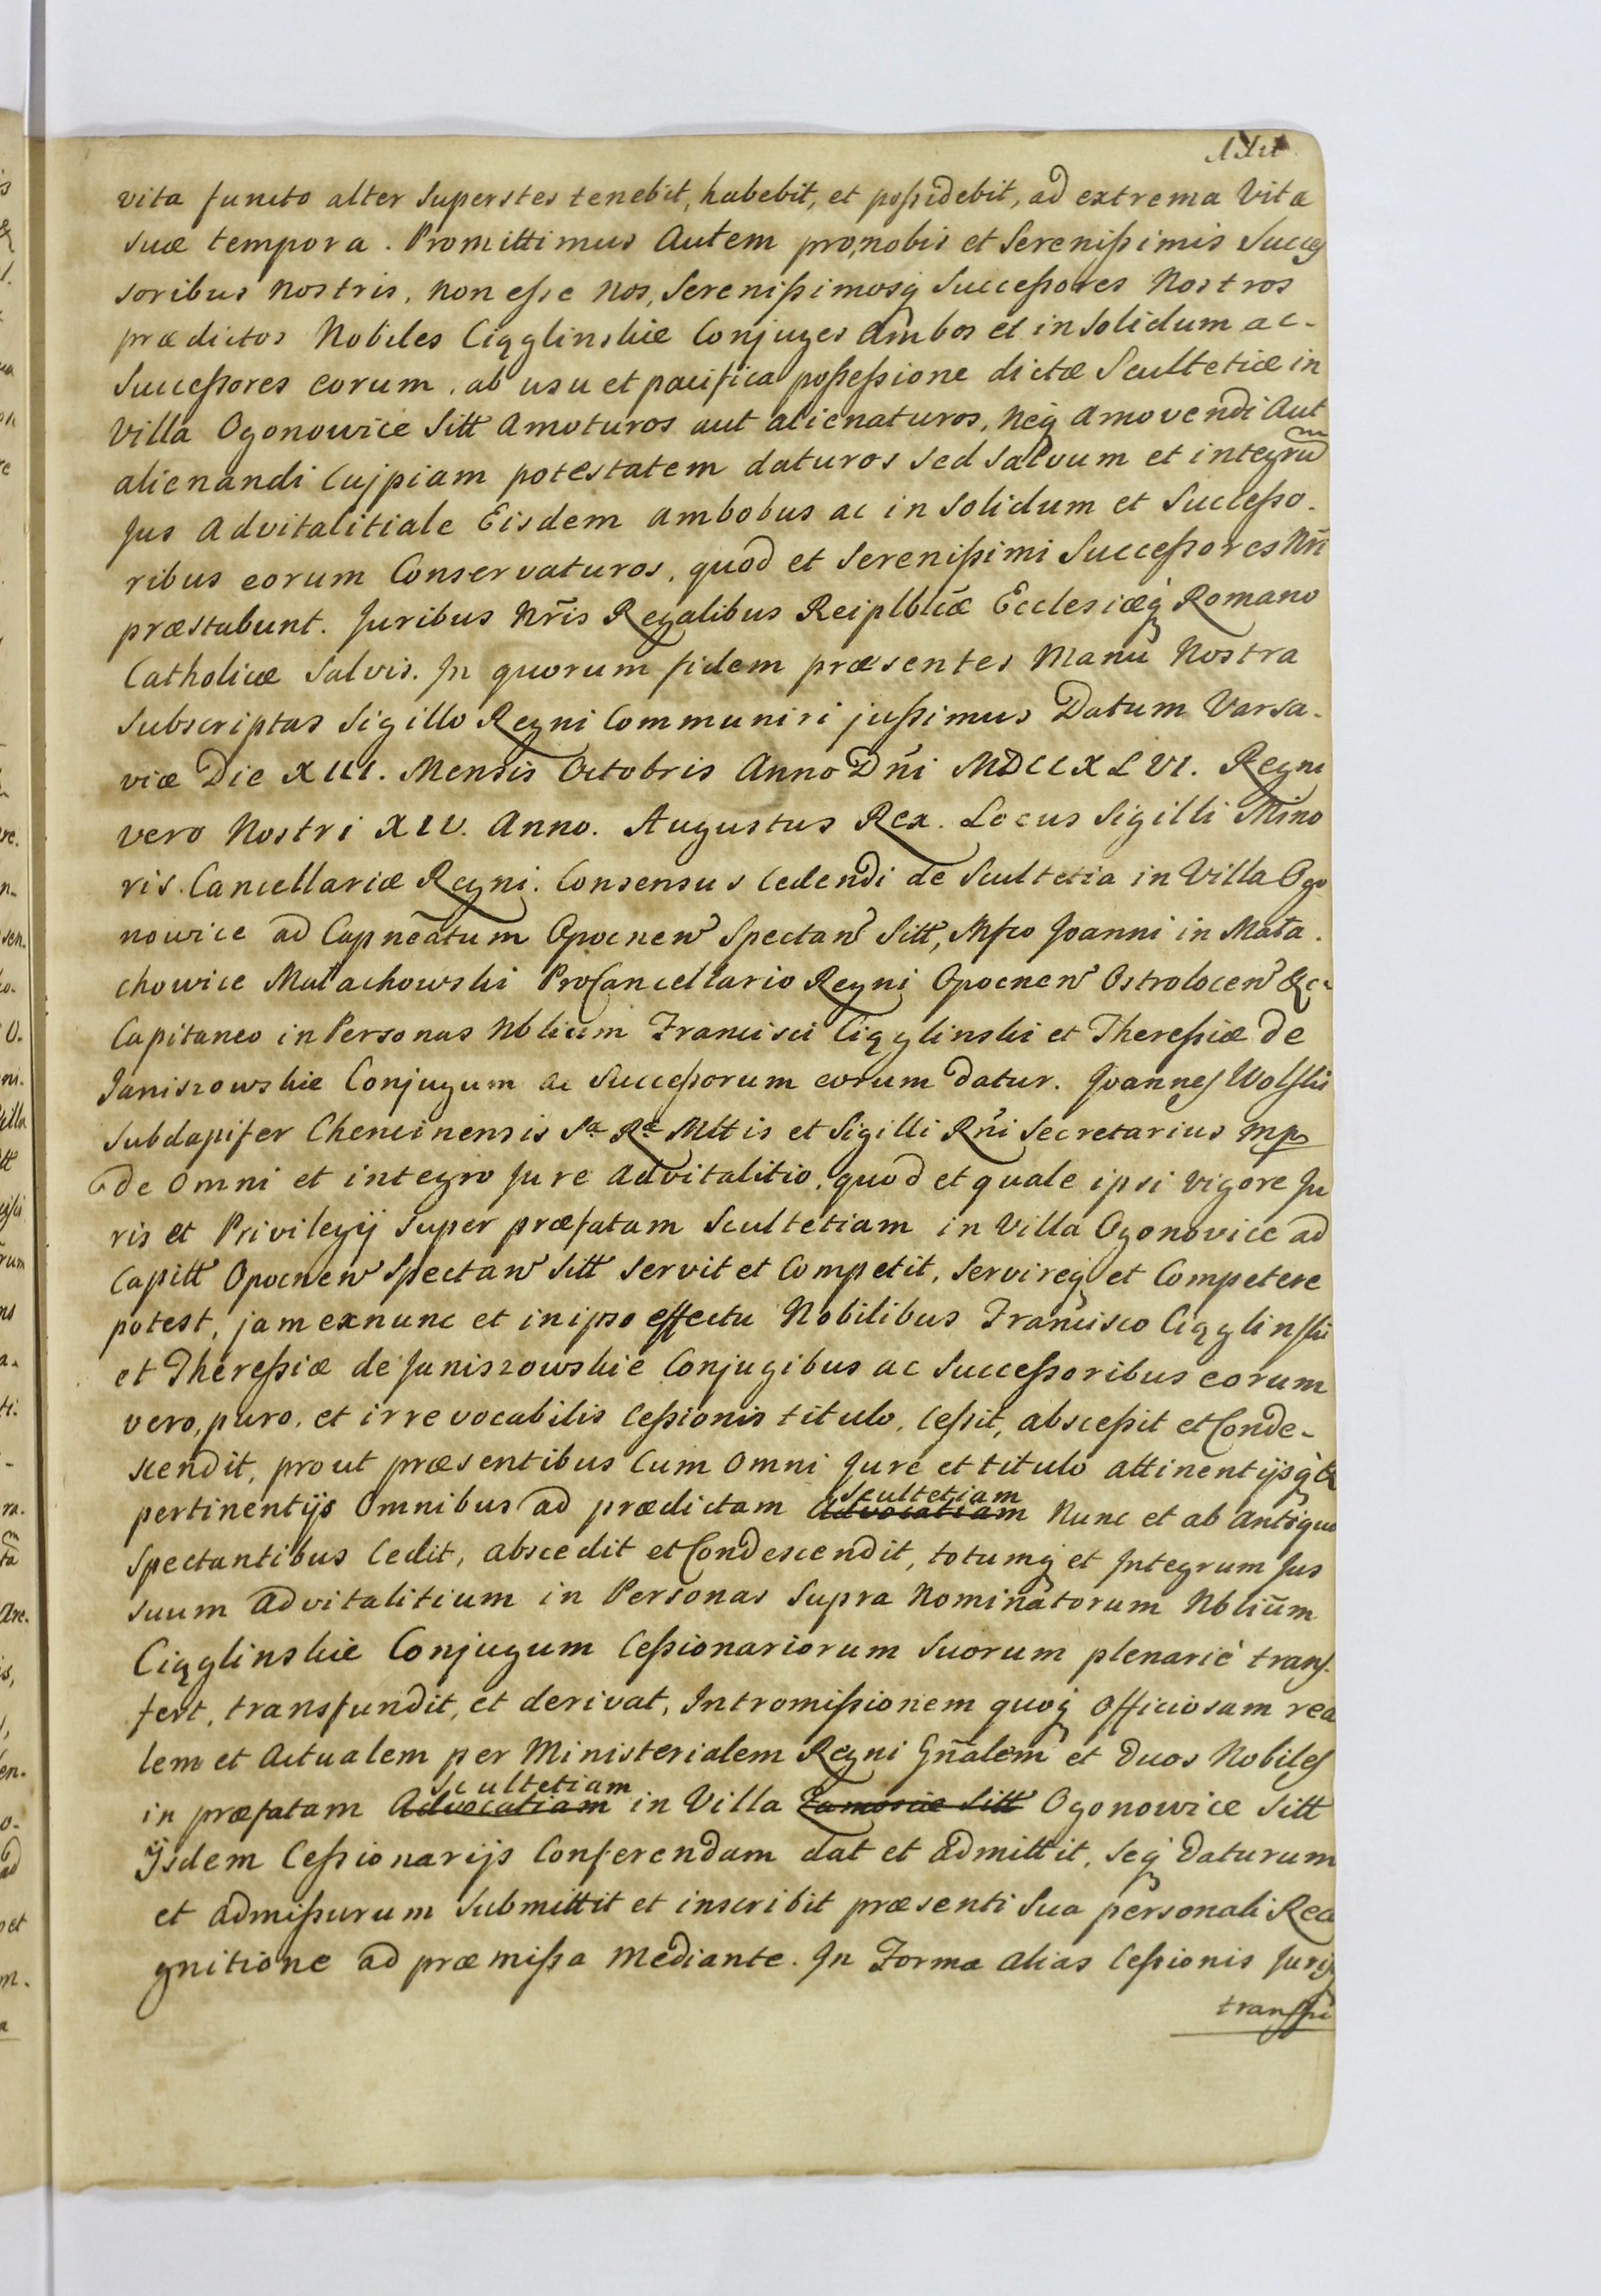 vita functo alter Superstes tenebit, habebit, et poſsidebit, ad extrema Vitæ
suæ tempora. Promittimus Autem pro nobis et Sereniſsimis Succeſ
soribus Nostris, non eſse Nos, Sereniſsimosq Succeſsores Nostros
prædictos Nobiles Ciąglinskie Conjuges Ambos et in Solidum ac
Succeſsores eorum, ab usu et pacifica poſseſsione dictæ Scultetiæ in
Villa Ogonowice Sitt Amoturos aut alienaturos, Neq Amovendi Aut
alienandi Cujpiam potestatem daturos sed salvum et integrũ
Jus Advitalitiale Eisdem ambobus ac in Solidum et Succeſso-
ribus eorum Conservaturos, quod et Sereniſsimi Succeſsores Nr̃i
præstabunt. Juribus Nr̃is Regalibus Reiplblicæ Ecclesiæq Romano
Catholicæ Salvis. In quorum fidem præsentes Manu Nostra
Subscriptas Sigillo Regni Communiri juſsimus Datum Varsa-
viæ Die XIII. Mensis Octobris Anno Dñi MDCCXLVI. Regni
vero Nostri XIV. Anno. Augustus Rex. Locus Sigilli Mino
ris Cancellariæ Regni. Consensus Cedendi de Scultetia in Villa Ogo
nowice ad Capneãtum Opocnen Spectan Sitt, Mfco Joanni in Mała
chowice Małachowski ProCancellario Regni Opocnen Ostrolocen &c
Capitaneo in Personas Nblium Francisci Ciąglinski et Thereſsiæ de
Janiszowskie Conjugum ac Succeſsorum eorum datur. Joanneſ Wolſki
Subdapifer Chencinensis Sæ Ræ Mttis et Sigilli Rñi Secretarius mp
de Omni et integro Jure Advitalitio, quod et quale ipsi vigore Ju
ris et Privilegij super præfatam Scultetiam in Villa Ogonovice ad
Capitt Opocnen Spectan Sitt servit et Competit, Servireq et Competere
potest, jam ex nunc et in ipso effectu Nobilibus Francisco Ciąglinſki
et Thereſsiæ de Janiszowskie Conjugibus ac Succeſsoribus eorum
vero, puro, et irrevocabilis Ceſsionis titulo, Ceſsit, absceſsit et Conde-
scendit, prout præsentibus Cum Omni Jure et titulo attinentijsq &
pertinentijs Omnibus ad prædictam Advocatiam Scultetiam Nunc et ab Antiquo
Spectantibus Cedit, abscedit et Condescendit, totumq et Integrum Jus
suum Advitalitium in Personas Supra Nominatorum Nbliũm
Ciąglinskie Conjugum Ceſsionariorum Suorum plenariè tranſ-
fert, transfundit, et derivat, Intromiſsionem quoq Officiosam rea
lem et Actualem per Ministerialem Regni Gñalem et Duos Nobileſ
in præfatam Advocatiam Scultetiam in Villa Zamoscie Sitt Ogonowice Sitt
Ijsdem Ceſsionarijs Conferendam dat et admittit, Seq Daturum
et Admiſsurum Submittit et inscribit præsenti Sua personali Reco
gnitione ad præmiſsa Mediante. In Forma Alias Ceſsionis Juriſ